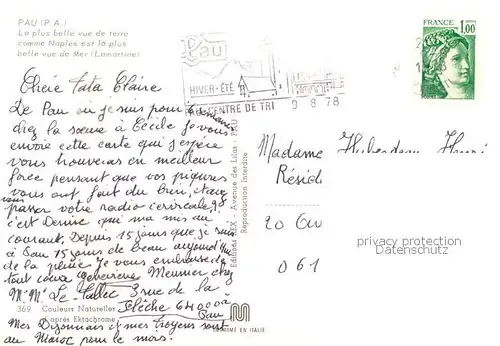 PAU (P.A.)
La plus belle vue de terre
comme Naples est la plus
belle vue de Mer (Lamartine)
Pau
HIVER-ÉTÉ
CENTRE DE TRI
9 8 78
FRANCE
1,00
Chère Tata Claire
De Pau où je suis pour 6 semaines
chez la sœur à Cécile je vous
envoie cette carte qui j'espère
vous trouveras en meilleur
force pensant que vos piqures
vous ont fait du bien, et avez
passer votre radio cervicale,
c'est Denise qui ma mis au
courant. Depuis 15 jours que je suis
à Pau 15 jours de beau aujourd'hui
de la pluie. Je vous embrasse de
tout cœur Geneviève Meunier chez
M. Mme Le Tallec 3 rue de la
Flèche 64000 à
Pau
Mes Dijonnais et mes Troyens sont
au Maroc pour le mois.
369 Couleurs Naturelles
d'après Ektachrome
Editions REX - Avenue des Lilas - PAU
Reproduction Interdite
IMPRIMÉ EN ITALIE
Madame
Résid
20
061
privacy protection
Datenschutz